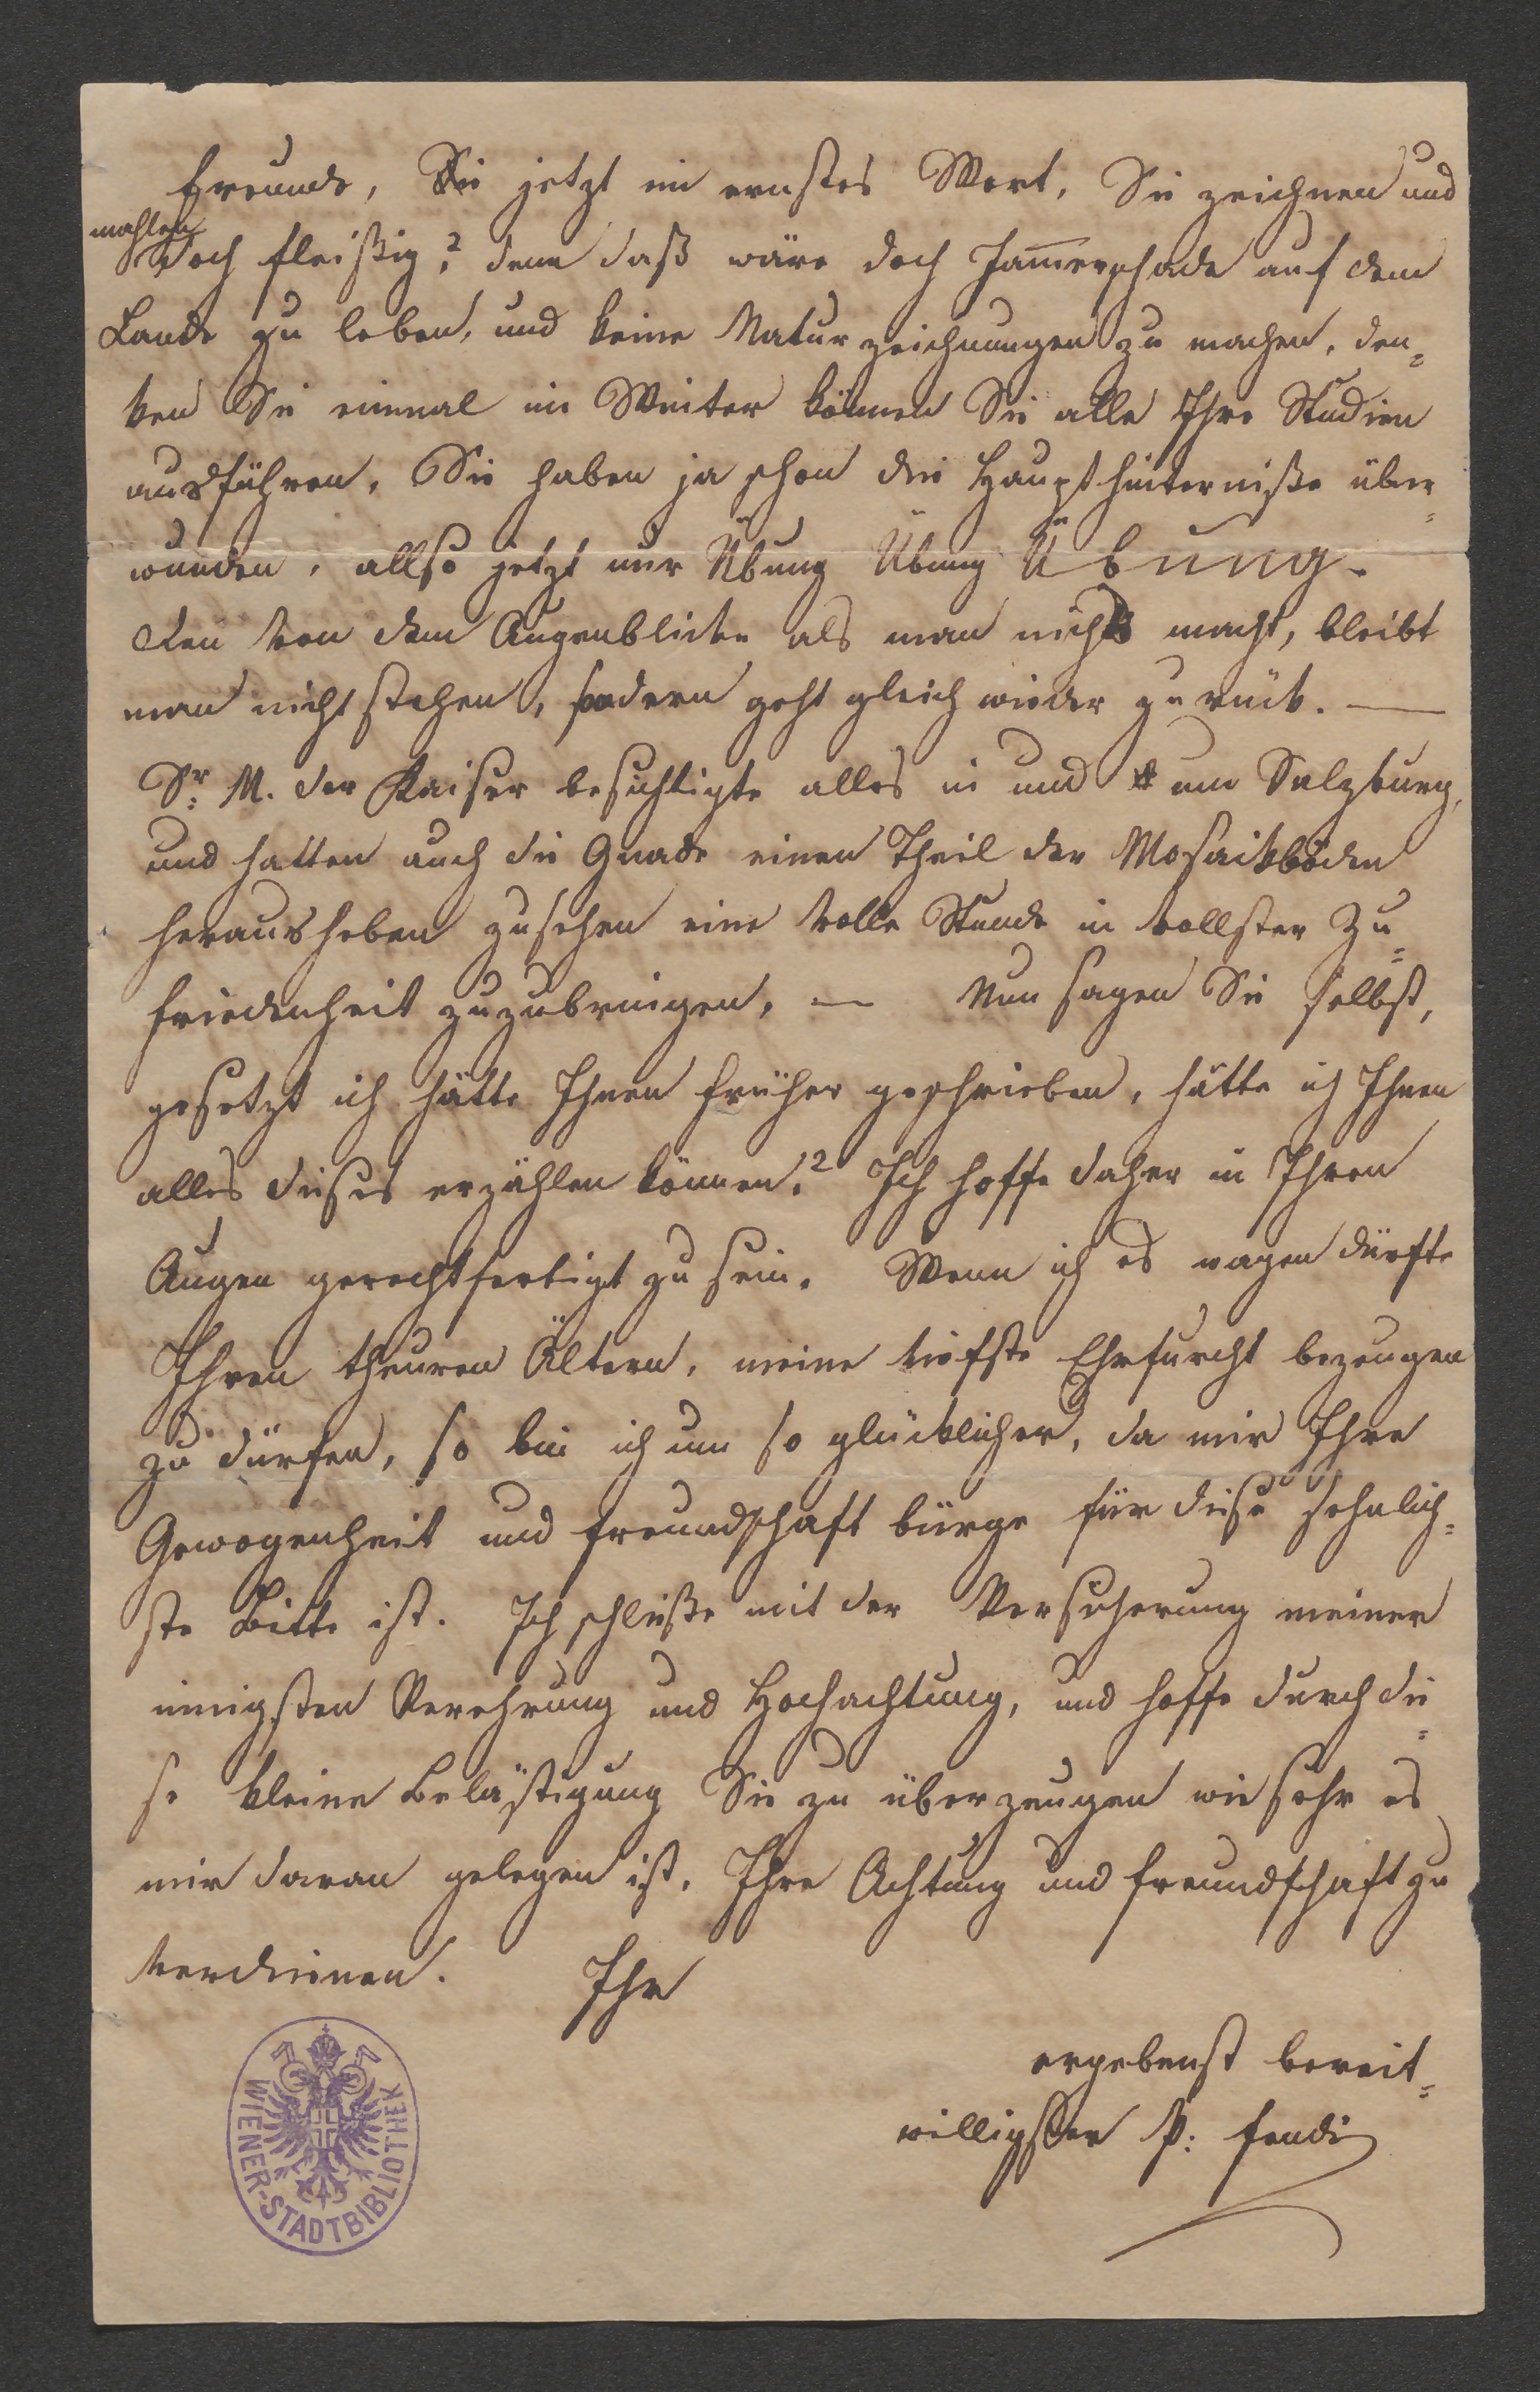 Freunde, Sie jetzt im ernstes Wort, Sie zeichnen und
mahlen
doch fleißig? denn daß wäre doch Jam̅erschade auf dem
Lande zu leben, und keine Naturzeichnungen zu machen, den=
ken Sie einmal im Winter können Sie alle Ihre Studien
ausführen, Sie haben ja schon die Haupthinterniße über=
wunden, allso jetzt nur Übung Übung Übung.
Den von dem Augenblicke als man nichts macht, bleibt
man nicht stehen, sondern geht gleich wieder zurück. —
Sr: M. der Kaiser besichtigte alles in und um Salzburg,
und hatten auch die Gnade einen Theil der Mosaikböden
herausheben zusehen eine volle Stunde in vollster Zu=
friedenheit zuzubringen. — Nun sagen Sie selbst,
gesetzt ich hätte Ihnen früher geschrieben, hätte ich Ihnen
alles dieses erzählen können? Ich hoffe daher in Ihren
Augen gerechtfertigt zu sein. Wenn ich es wagen dürfte
Ihren theuren Ältern, meine tiefste Ehrfurcht bezeugen
zu dürfen, so bin ich um so glücklicher, da mir Ihre
Gewogenheit und Freundschaft bürge für diese sehnlich=
ste Bitte ist. Ich schließe mit der Versicherung meiner
innigsten Verehrung und Hochachtung, und hoffe durch die=
se kleine Belästigung Sie zu überzeugen wie sehr es
mir daran gelegen ist, Ihre Achtung und Freundschaft zu
verdienen. Ihr
ergebenst bereit=
willigster P: Fendi
WIENER-STADTBIBLIOTHEK